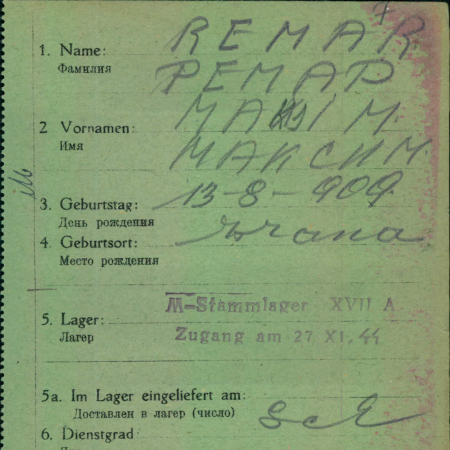 1. Name: REMAR
Фамилия РЕМАР
2 Vornamen: MAXIM.
Имя МАКСИМ.
3. Geburtstag: 13-8-909.
День рождения
4. Geburtsort:
Место рождения
5. Lager: M-Stammlager XVII A
Лагерь Zugang am 27 XI. 44
5a. Im Lager eingeliefert am:
Доставлен в лагерь (число)
6. Dienstgrad